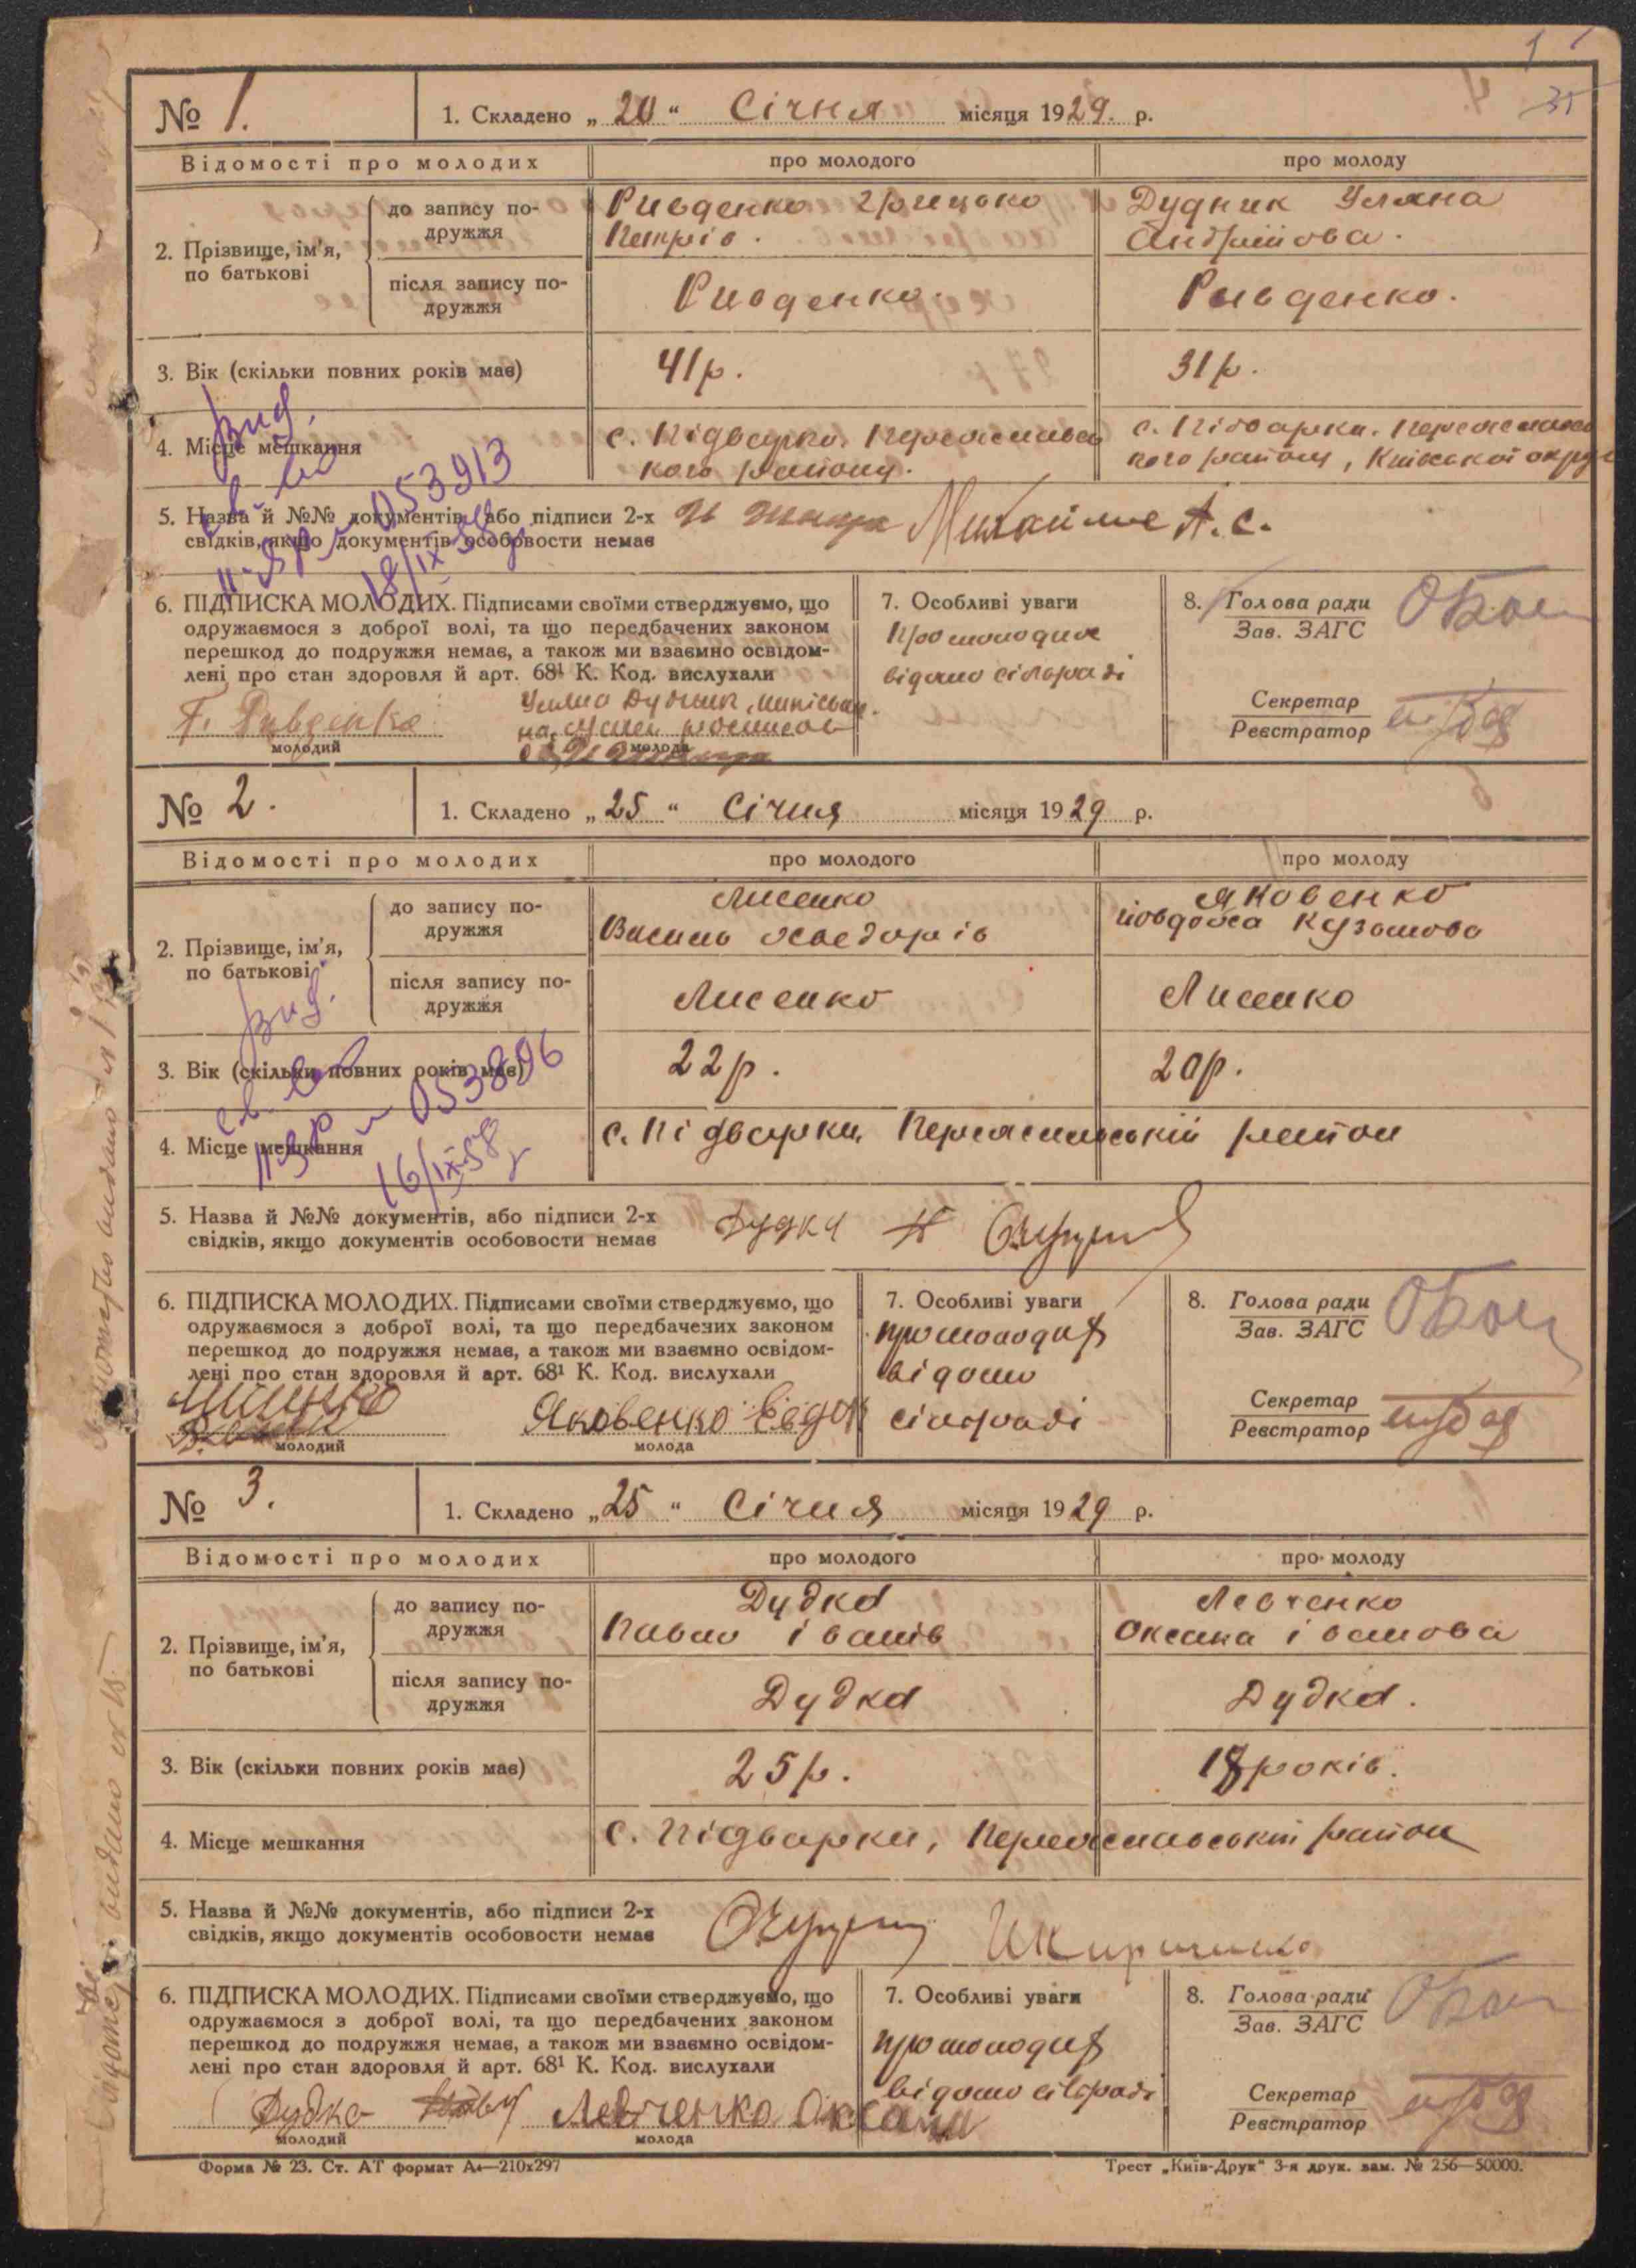 № 1. 1. Складено „20“ Січня місяця 1929. р.
Відомості про молодих про молодого про молоду
2. Прізвище, ім'я, по батькові
до запису по-
дружжя
Ривденко Грицько
Петрів.
Дудник Уляна
Андріївова.
після запису по-
дружжя
Ривденко. Ривденко.
3. Вік (скільки повних років має) 41р. 31р.
4. Місце мешкання
с. Підварки. Переяславсь
кого району.
с. Підварки. Переяславсь
кого району, Київської округи
5. Назва й №№ документів, або підписи 2-х
свідків, якщо документів особовости немає
Михайлю А. С.
вид.
053913
18/IX
6. ПІДПИСКА МОЛОДИХ. Підписами своїми стверджуємо, що
одружаємося з доброї волі, та що передбачених законом
перешкод до подружжя немає, а також ми взаємно освідом-
лені про стан здоровля й арт. 68¹ К. Код. вислухали
Г. Ривденко
молодий
Дудник
молода
7. Особливі уваги
Про молодих
відомо сільраді
8. Голова ради
Зав. ЗАГС
Секретар
Реєстратор
№ 2. 1. Складено „25“ Січня місяця 1929 р.
Відомості про молодих про молодого про молоду
2. Прізвище, ім'я, по батькові
до запису по-
дружжя
Лисенко
Василь
Яковенко
Кузьмова
після запису по-
дружжя
Лисенко Лисенко
3. Вік (скільки повних років має) 22р. 20р.
4. Місце мешкання с. Підварки, Переяславський район
вид.
053896
16/IX-58
5. Назва й №№ документів, або підписи 2-х
свідків, якщо документів особовости немає
Дудка
6. ПІДПИСКА МОЛОДИХ. Підписами своїми стверджуємо, що
одружаємося з доброї волі, та що передбачених законом
перешкод до подружжя немає, а також ми взаємно освідом-
лені про стан здоровля й арт. 68¹ К. Код. вислухали
молодий
Яковенко Евдок
молода
7. Особливі уваги
про молодих
відомо
сільраді
8. Голова ради
Зав. ЗАГС
Секретар
Реєстратор
№ 3. 1. Складено „25“ Січня місяця 1929 р.
Відомості про молодих про молодого про молоду
2. Прізвище, ім'я, по батькові
до запису по-
дружжя
Дудка
Павло Іванів
Левченко
Оксана Іванова
після запису по-
дружжя
Дудка Дудка.
3. Вік (скільки повних років має) 25р. 18 років.
4. Місце мешкання с. Підварки, Переяславський район
5. Назва й №№ документів, або підписи 2-х
свідків, якщо документів особовости немає
6. ПІДПИСКА МОЛОДИХ. Підписами своїми стверджуємо, що
одружаємося з доброї волі, та що передбачених законом
перешкод до подружжя немає, а також ми взаємно освідом-
лені про стан здоровля й арт. 68¹ К. Код. вислухали
Дудка
молодий
Левченко Оксана
молода
7. Особливі уваги
про молодих
відомо сільраді
8. Голова ради
Зав. ЗАГС
Секретар
Реєстратор
Форма № 23. Ст. АТ формат А₄—210х297
Трест „Київ-Друк“ 3-я друк. зам. № 256—50000.